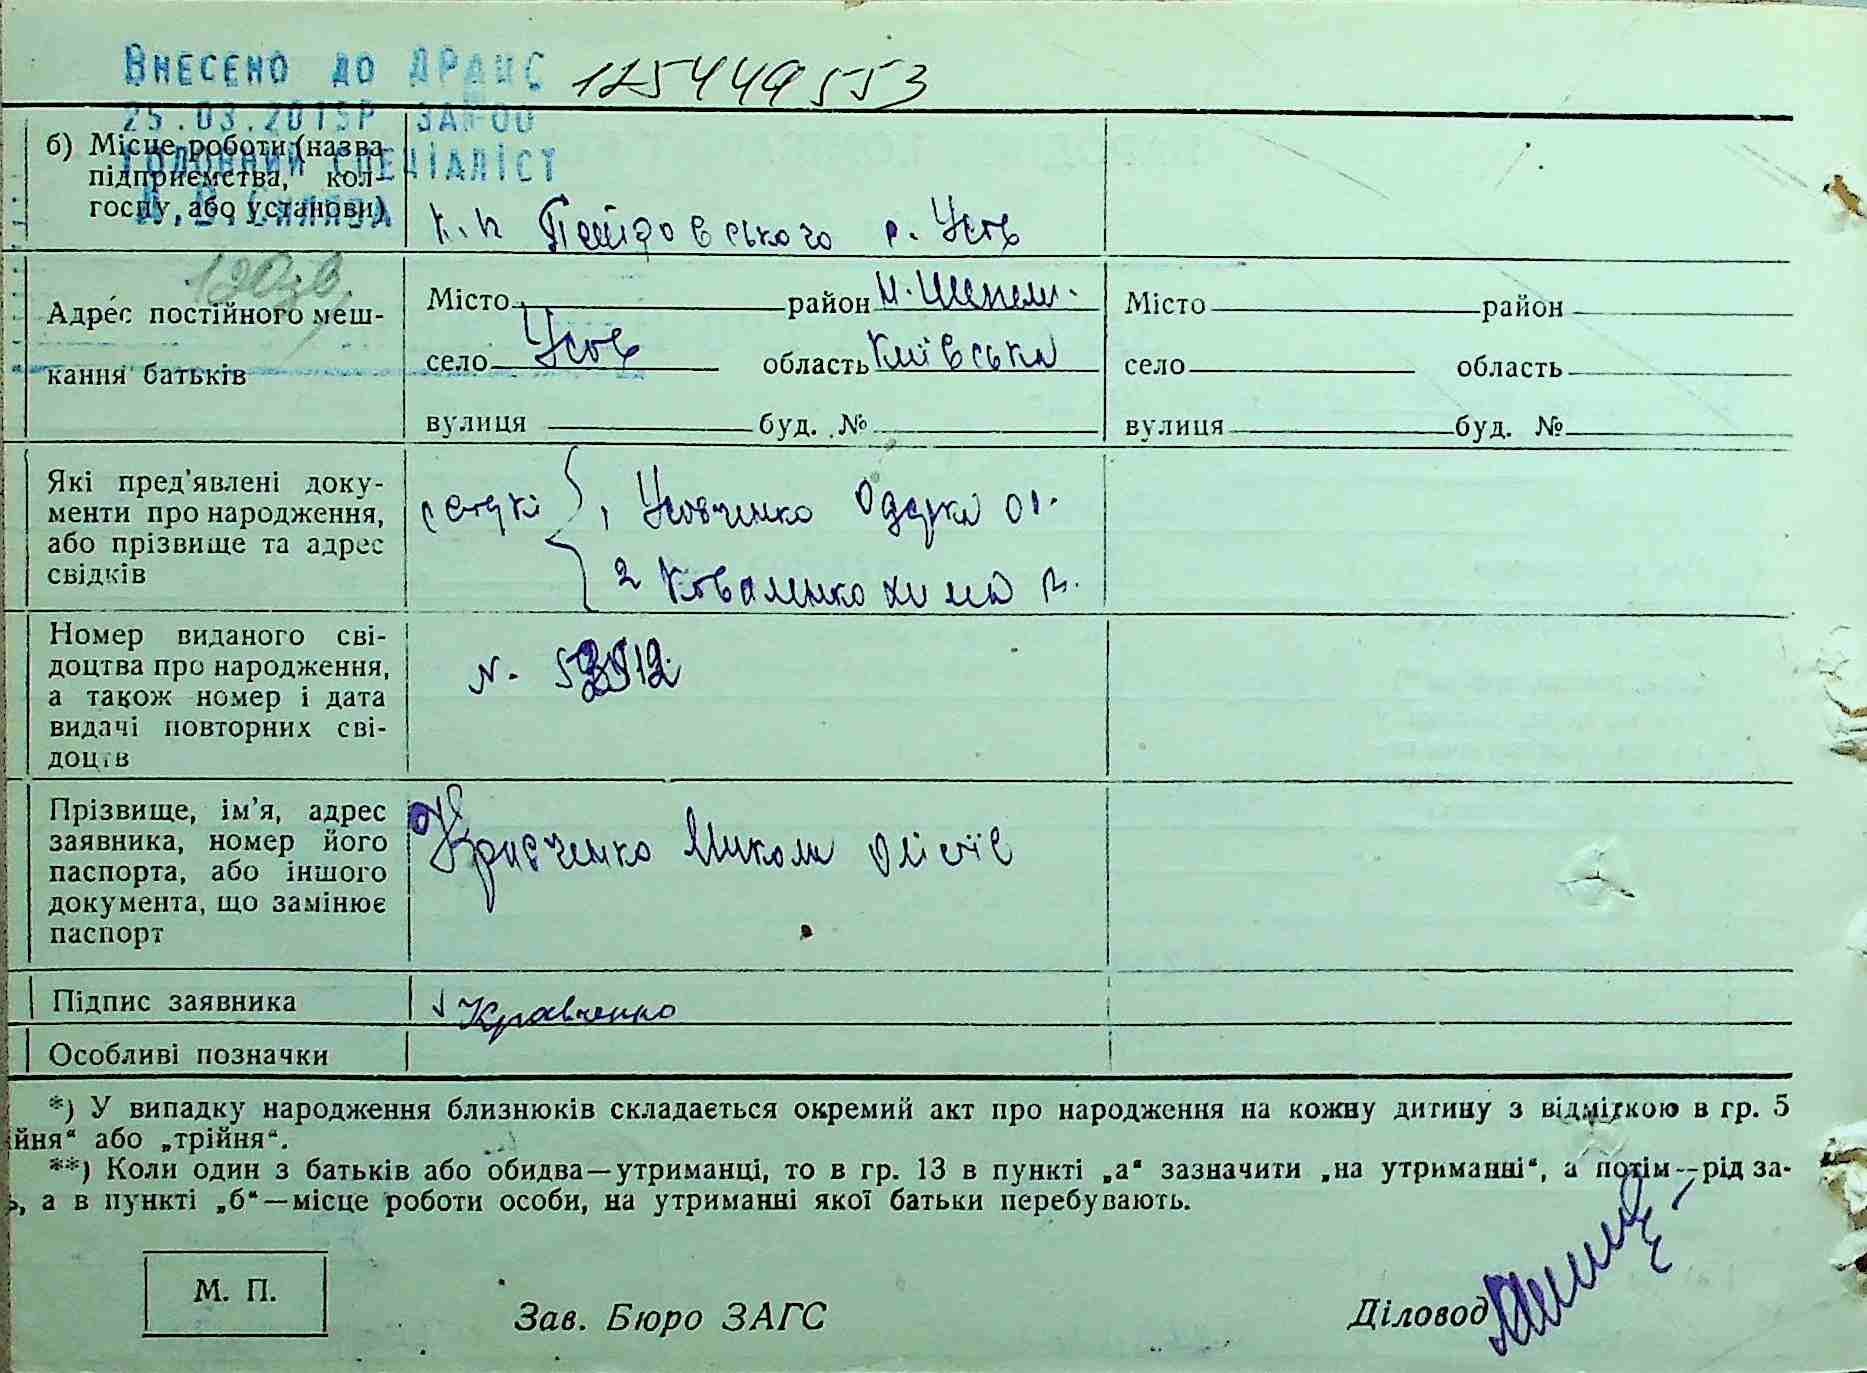 ВНЕСЕНО ДО ДРАЦС 125449553
25.03.2015Р ЗАГ-00
ГОЛОВНИЙ СПЕЦІАЛІСТ
б) Місце роботи (назва
підприємства, кол-
госпу, або установи)
К.п Петровського с. Усів
Адрес постійного меш-
кання батьків
Місто район
село Усів область Київська
вулиця буд. №
Місто район
село область
вулиця буд. №
Які пред'явлені доку-
менти про народження,
або прізвище та адрес
свідків
1 Усовченко Одарка
2 Коваленко
Номер виданого сві-
доцтва про народження,
а також номер і дата
видачі повторних сві-
доцтв
N.
Прізвище, ім'я, адрес
заявника, номер його
паспорта, або іншого
документа, що замінює
паспорт
Кравченко Микола
Підпис заявника
Кравченко
Особливі позначки
*) У випадку народження близнюків складається окремий акт про народження на кожну дитину з відміткою в гр. 5
йня" або „трійня".
**) Коли один з батьків або обидва—утриманці, то в гр. 13 в пункті „а" зазначити „на утриманні", а потім—рід за-
ь, а в пункті „б"—місце роботи особи, на утриманні якої батьки перебувають.
М. П.
Зав. Бюро ЗАГС
Діловод